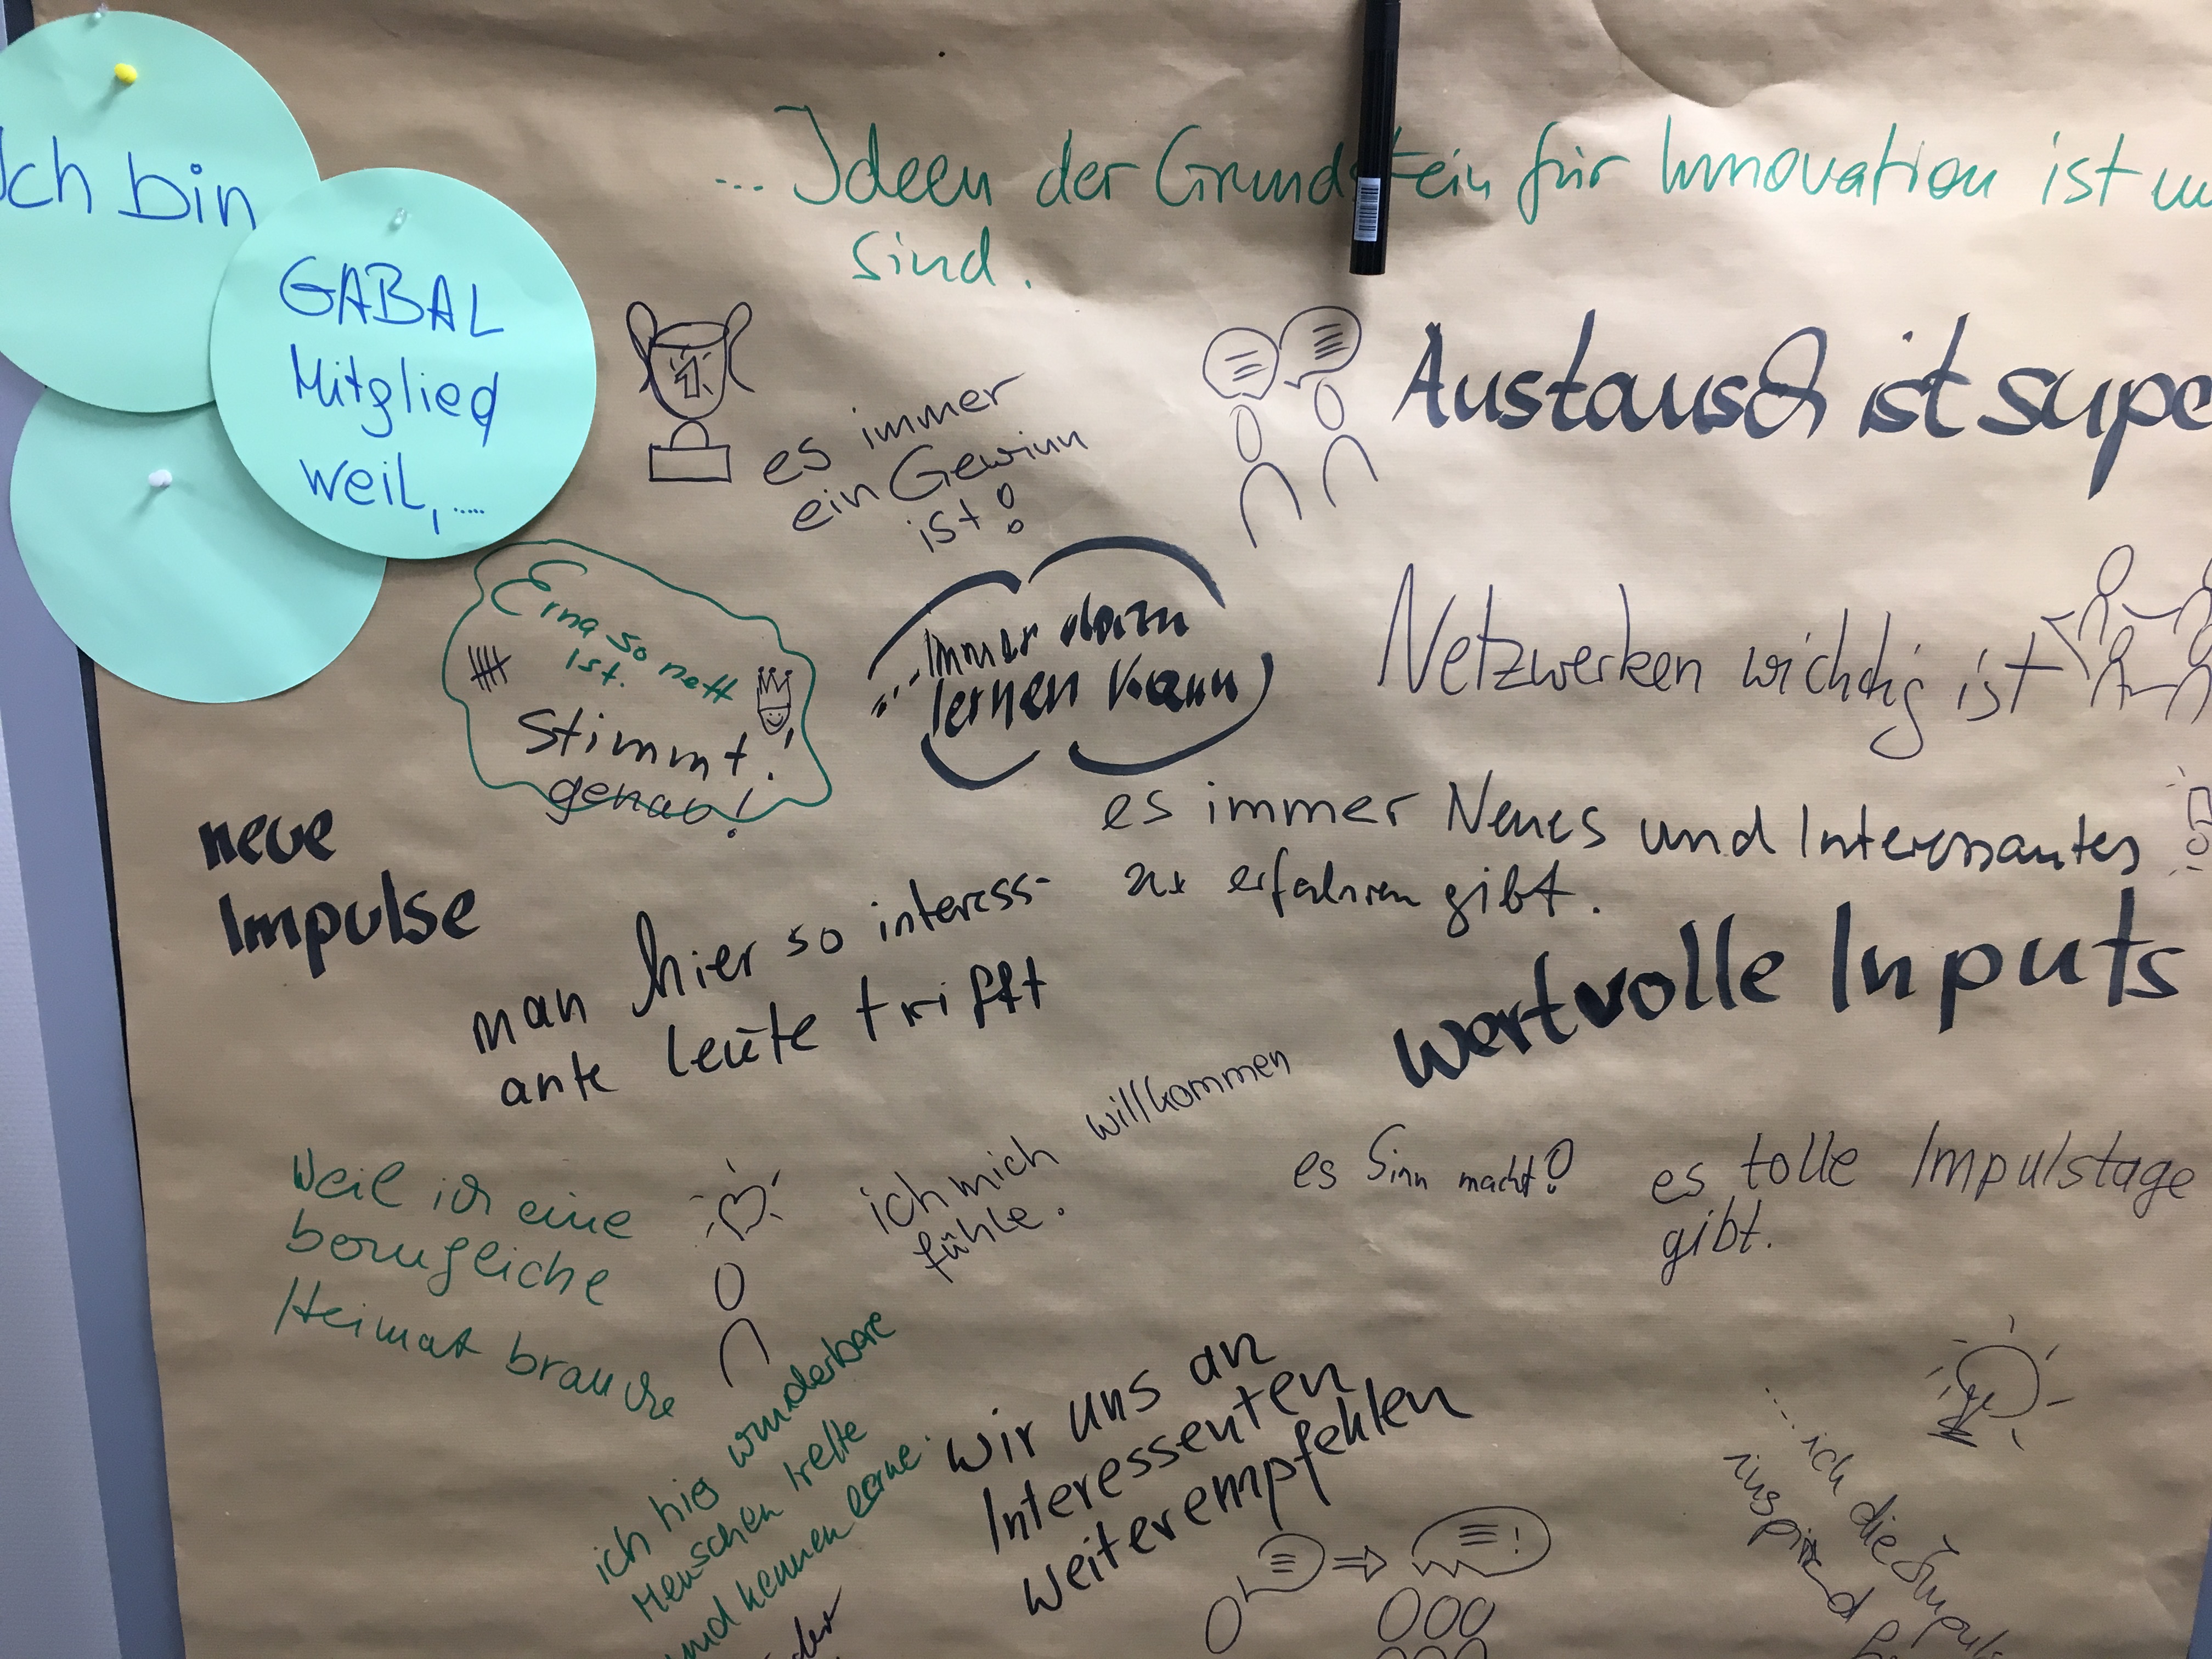 Ich bin
GABAL
Mitglied
weil,.....
... Ideen der Grundstein für Innovation ist
sind.
1
es immer
ein Gewinn
ist!
Austausch ist supe
Erna so nett
ist.
Stimmt!
genau!
... immer dazu
lernen kann
Netzwerken wichtig ist
es immer Neues und Interessantes
zu erfahren gibt.
neue
Impulse
man hier so interess-
ante leute trifft
wertvolle Inputs
ich mich willkommen
fühle.
es Sinn macht!
es tolle Impulstage
gibt.
Weil ich eine
berufliche
Heimat brauche
ich hier wunderbare
Menschen treffe
und kennen lerne.
wir uns an
Interessenten
weiterempfehlen
!
..... ich die Impuls